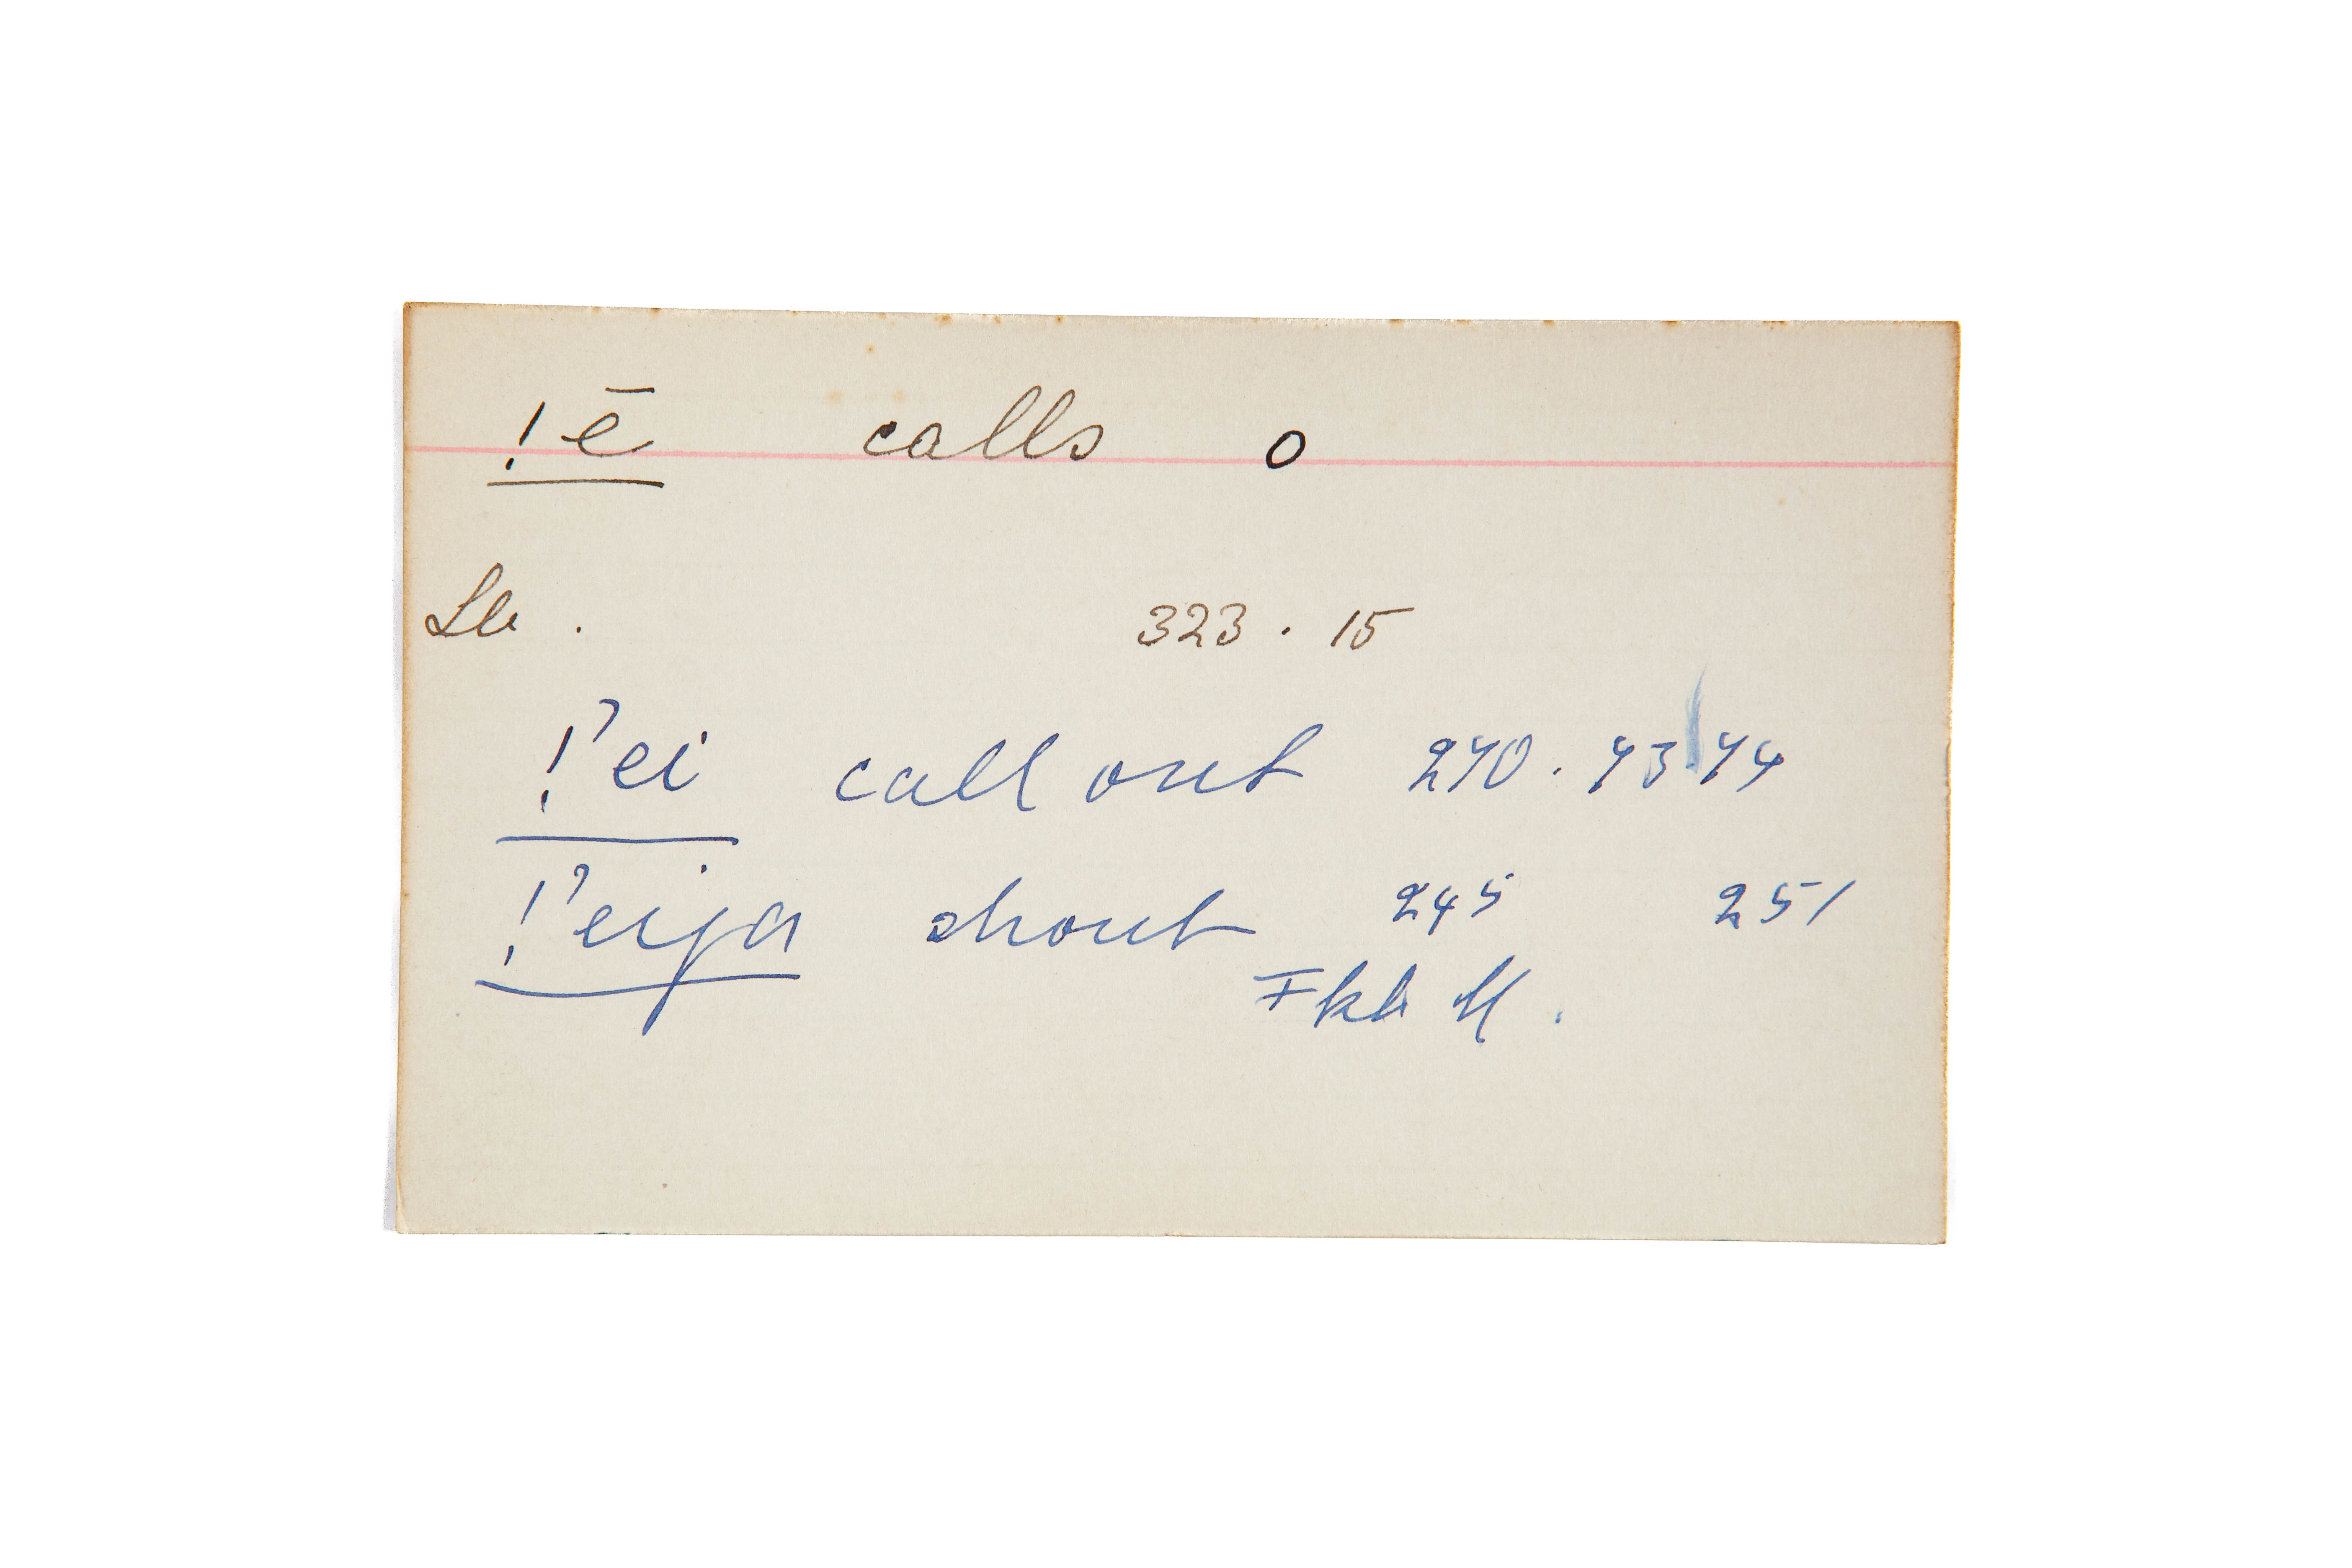 !ē calls o
Lb . 323 . 15
!ˀei call out 240 . 43 44
!ˀeija shout 245 251